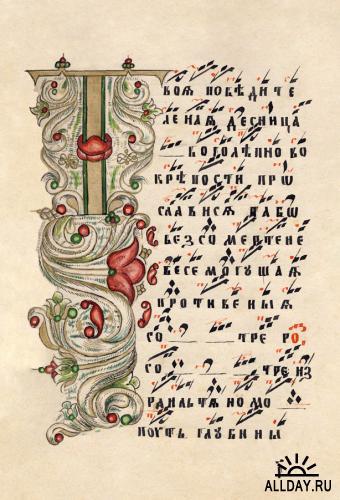 Твоя побѣдиче
леная десница
боголѣпно во
крѣпости прѡ
славися та бѡ
безсомертене
весемогущая
противеныя
со тре ро,
со тре из
раильтяномо
поуть глубины
ALLDAY.RU